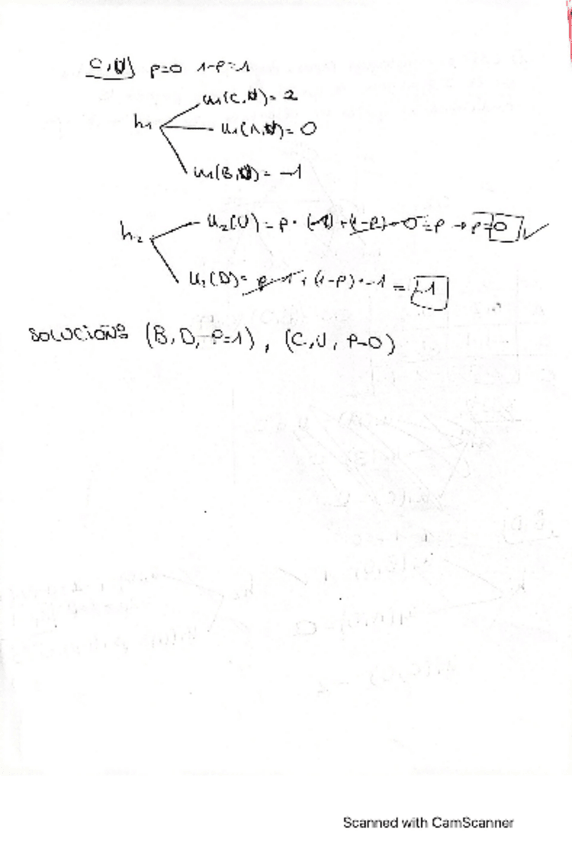 C,U) p=0 1-p=1
h₁
u₁(C,U)= 2
u₁(A,U)= 0
u₁(B,U)= -1
h₂
u₂(U)= p· (-1) +(1-p)·0 = -p → p=0 ✓
u₂(D)= p·1 + (1-p)·-1 = -1
SOLUCIONS (B,D, P=1) , (C,U, P=0)
Scanned with CamScanner